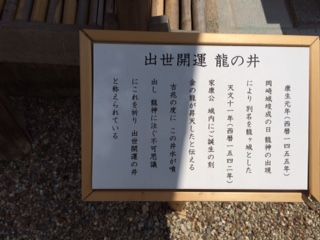 出世開運 龍の井
康生元年(西暦一四五五年)
岡崎城竣成の日 龍神の出現
により 別名を龍ヶ城とした
天文十一年(西暦一五四二年)
家康公 城内にご誕生の刻
金の龍が昇天したと伝える
吉兆の度に この井水が噴
出し 龍神に注ぐ不可思議
にこれを祈り 出世開運の井
と称えられている